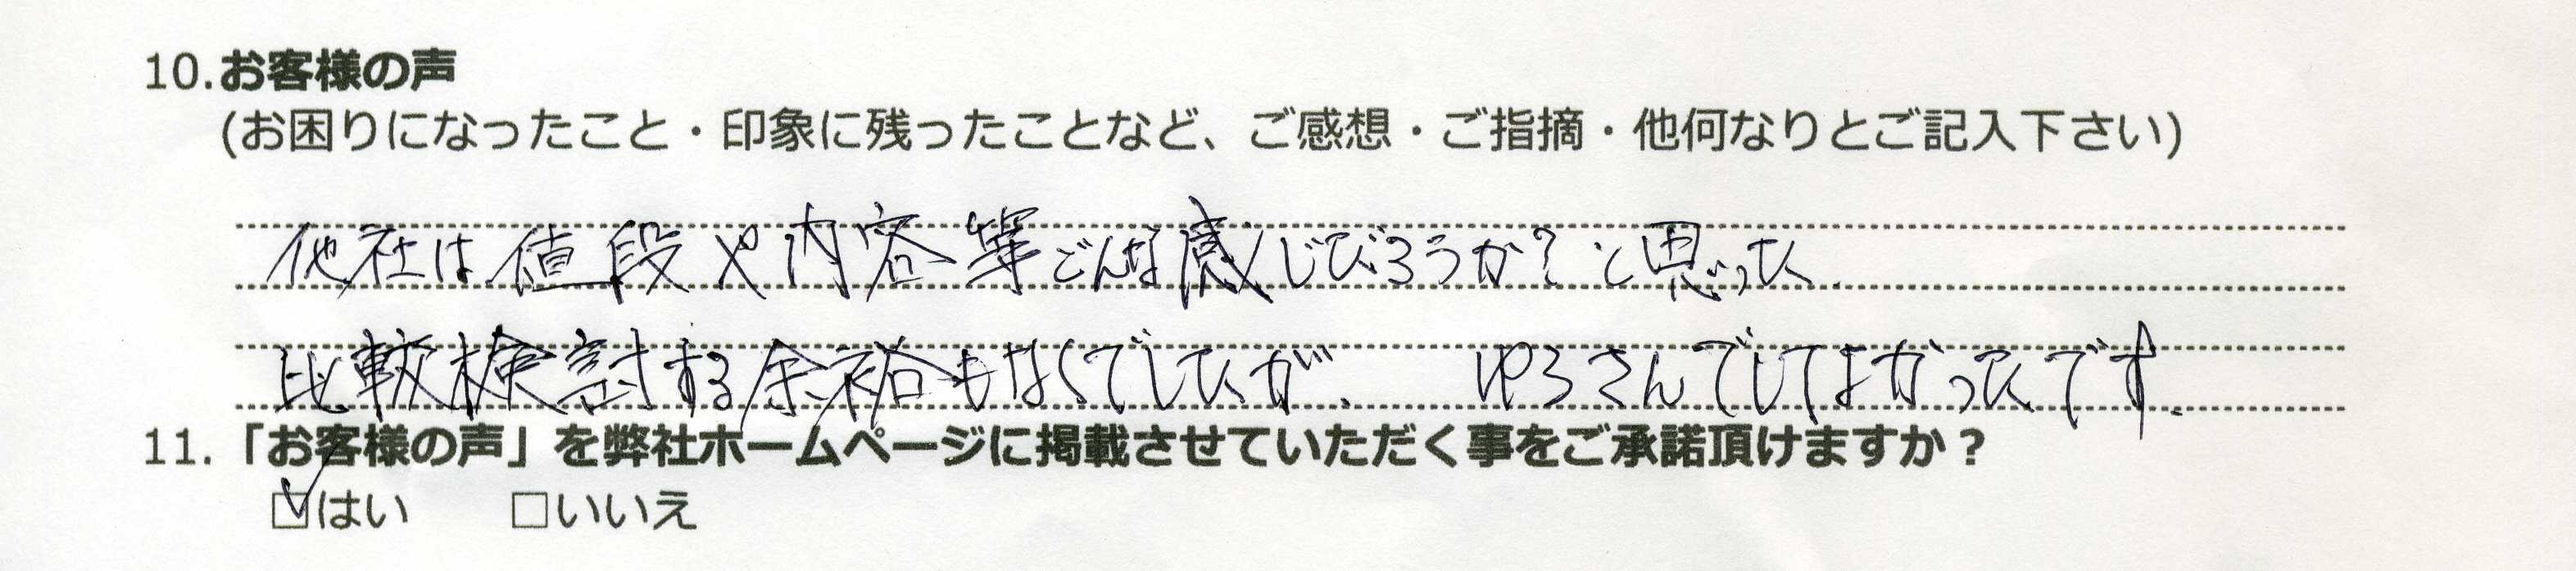 10.お客様の声
(お困りになったこと・印象に残ったことなど、ご感想・ご指摘・他何なりとご記入下さい)
他社は値段や内容等どんな感じだろうか？と思った。
比較検討する余裕もなくでしたが、 ゆろさんでしてよかったです。
11.「お客様の声」を弊社ホームページに掲載させていただく事をご承諾頂けますか？
☑はい □いいえ